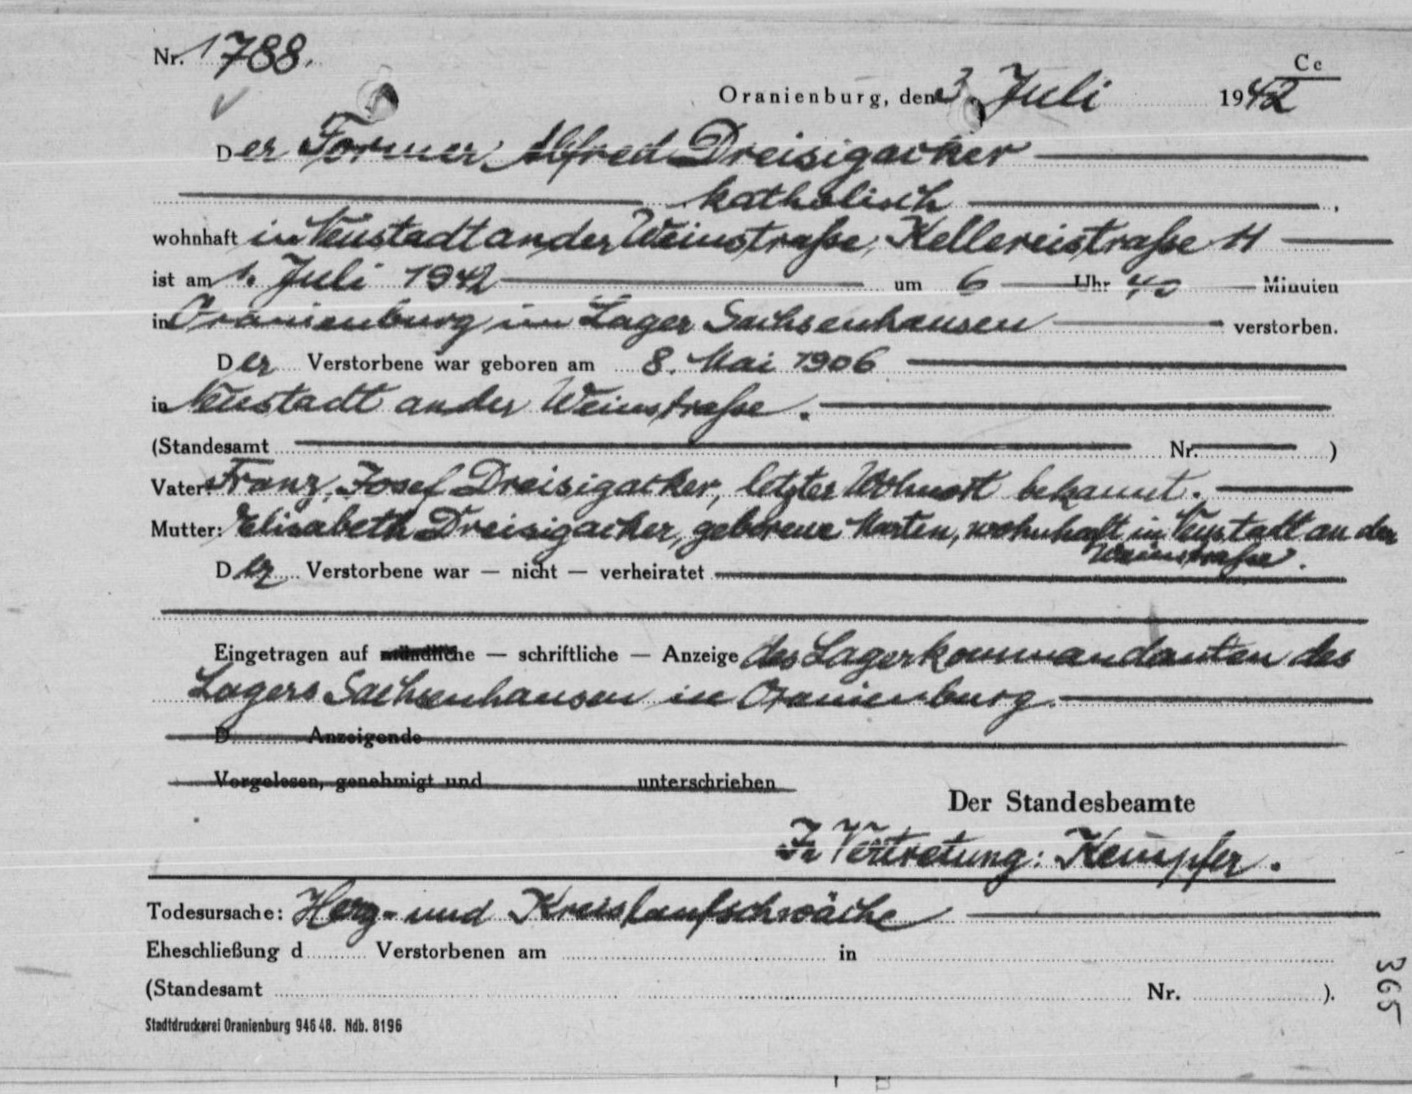 Nr. 1788.
Cc
Oranienburg, den 3. Juli 1942
Der Former Alfred Dreisigacker
katholisch,
wohnhaft in Neustadt an der Weinstraße, Kellereistraße 11
ist am 1. Juli 1942 um 6 Uhr 40 Minuten
in Oranienburg im Lager Sachsenhausen verstorben.
Der Verstorbene war geboren am 8. Mai 1906
in Neustadt an der Weinstraße.
(Standesamt Nr. )
Vater: Franz, Josef Dreisigacker, letzter Wohnort bekannt.
Mutter: Elisabeth Dreisigacker, geborene Marten, wohnhaft in Neustadt an der
Weinstraße.
Der Verstorbene war — nicht — verheiratet
Eingetragen auf mündliche — schriftliche — Anzeige des Lagerkommandanten des
Lagers Sachsenhausen in Oranienburg.
D Anzeigende
Vorgelesen, genehmigt und unterschrieben
Der Standesbeamte
In Vertretung: Kempfer.
Todesursache: Herz- und Kreislaufschwäche
Eheschließung d Verstorbenen am in
(Standesamt Nr. ).
Stadtdruckerei Oranienburg 946 48. Ndb. 8196
365